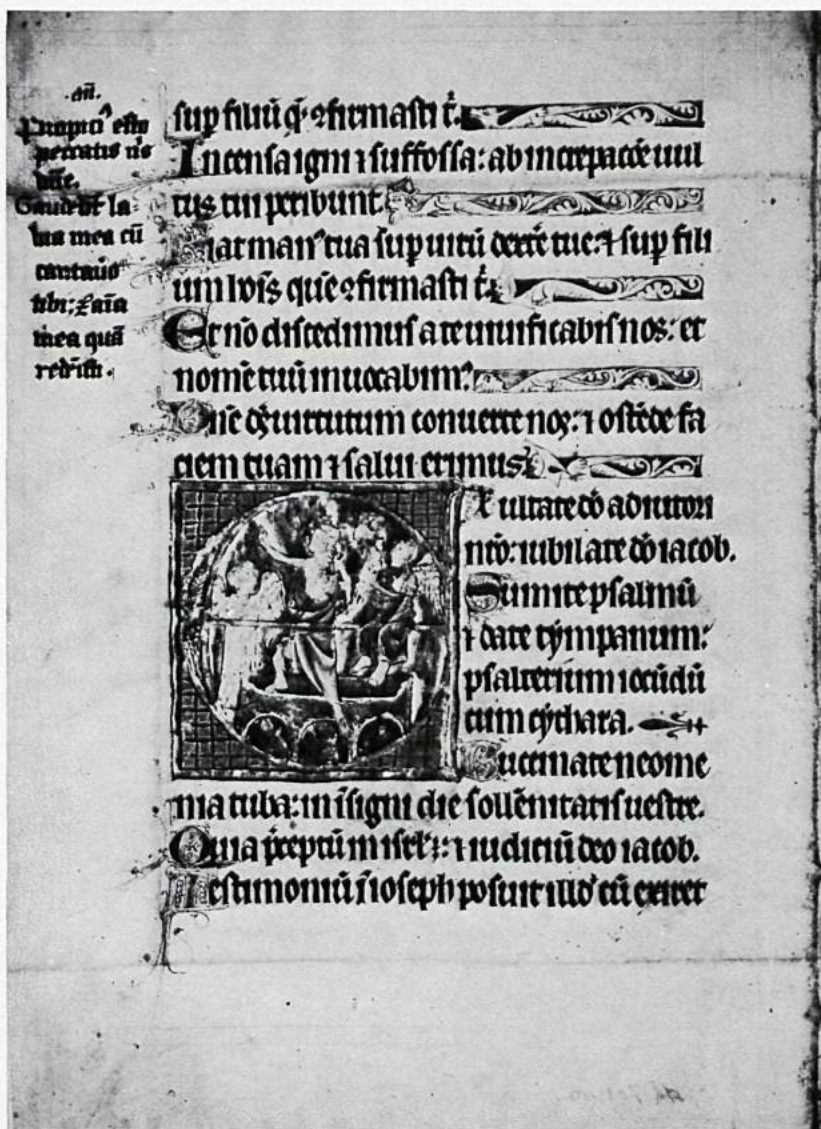 .añ.
Propici᷒ esto
peccatis nr̄is
dñe.
Gaudebt̄ la-
bia mea cū
cantau᷒o
tibi: ⁊ aīa
mea quā
redēisti.
sup filiū q̄ ꝯfirmasti t̄.
Incensa igni ⁊ suffossa: ab increpacōe uul
tus tui peribunt.
Fiat man᷒ tua sup uirū dextre tue: ⁊ sup fili
um hoīs quē ꝯfirmasti t̄.
Et nō discedimus a te uiuificabis nos: et
nomē tuū inuocabim᷒.
Dñe ds̄ uirtutum conuerte nos: ⁊ ostēde fa
ciem tuam ⁊ salui erimus.
Exultate dō adiutori
nrō: iubilate dō iacob.
Sumite psalmū
⁊ date tẏmpanum:
psalterium iocūdū
cum cẏthara.
Bucinate neome
nia tuba: in īsigni die sollēnitatis uestre.
Quia p̄ceptū in isrl̄ ē: ⁊ iudiciū deo iacob.
Testimoniū ī ioseph posuit illd᷒ cū exiret